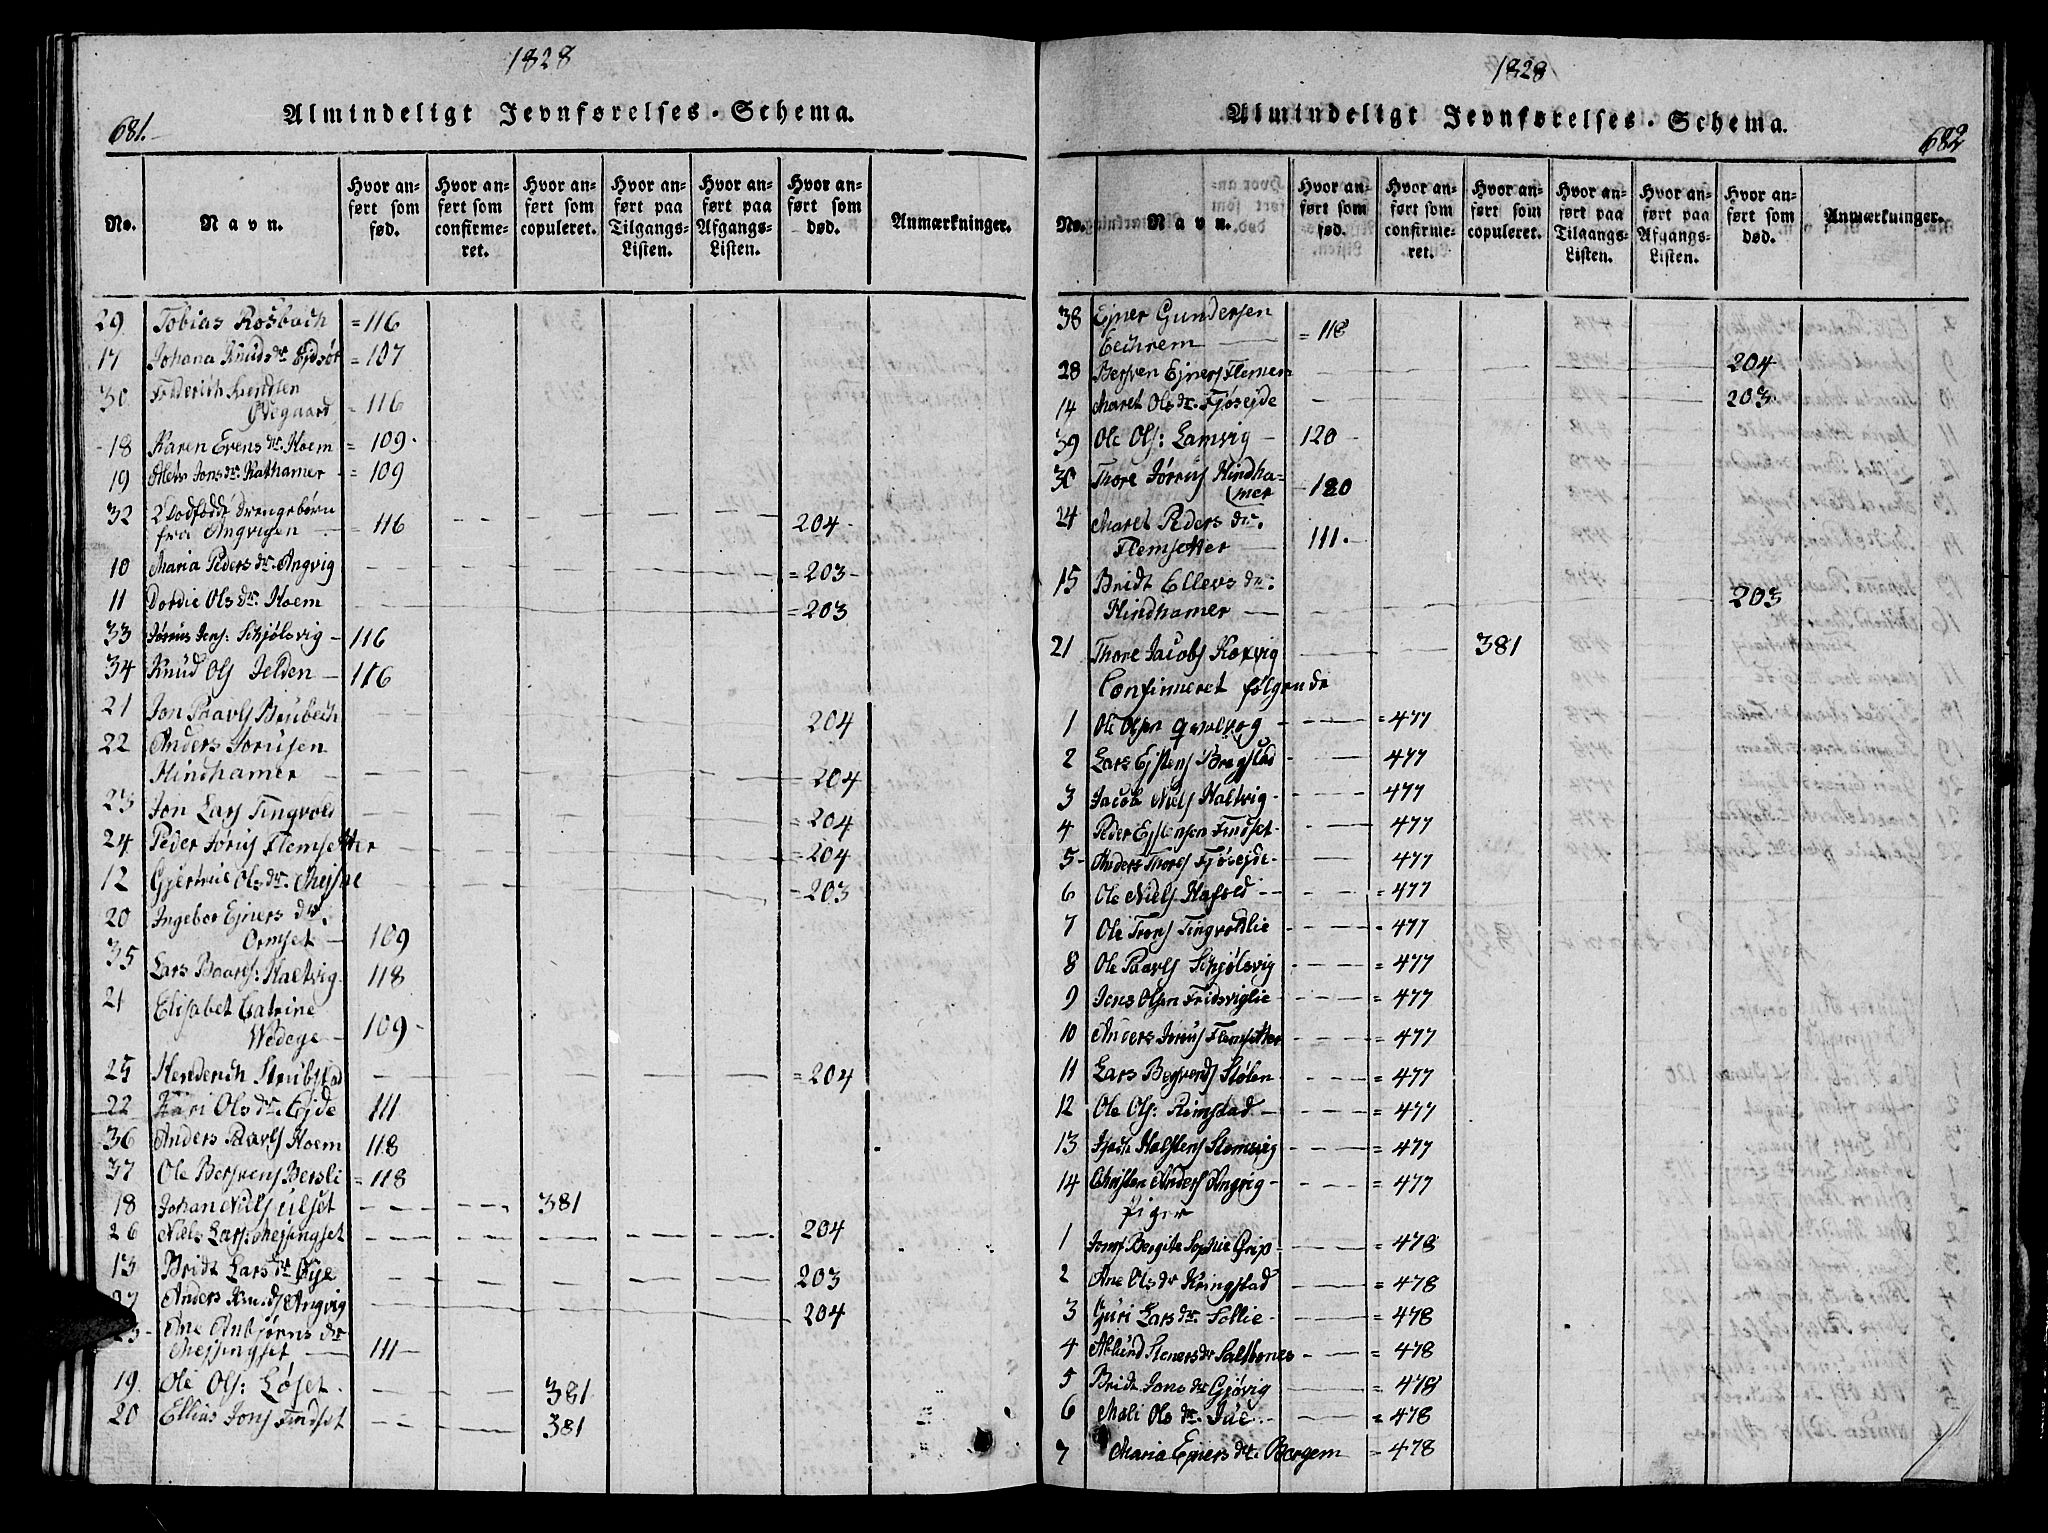 1828
681.
Almindeligt Jevnførelses-Schema.
No. Navn. Hvor anført som fød. Hvor anført som confirmeret. Hvor anført som copuleret. Hvor anført paa Tilgangs-Listen. Hvor anført paa Afgangs-Listen. Hvor anført som død. Anmærkninger.
29. Tobias Rosbach = 116
17 Johana Knuds dr. Ejdsør = 107
30 Friderich Svendsen
Ødegaard = 116
18 Karen Evens dr. Hoem = 109
19 Olets Jons dr. Rathamer = 109
32 2 dodfødde Drengebørn
fra Angvigen = 116 204
10 Maria Peders dr. Angvig = 203
11 Dordie Ols dr. Hoem = 203
33 Jørius Jens: Schjølsvig 116
34 Knud Ols Jelden 116
21 Jon Paavls Brubech 204
22 Anders Joriusen
Hindhamer = 204
23 Jon Lars Tingvold = 204
24 Peder Jørius Flemsetter = 204
12 Gjertrue Ols dr. Mejsne = 203
20 Ingebor Ejners dr.
Ormset 109
35 Lars Baars: Haltvig 118
21 Elisabet Catrine
Wedege 109
25 Henderich Strubstad = 204
22 Kari Ols dr. Ejde 111
36 Anders Paavls Hoem 118
37 Ole Bersvens Bersli = 118
18 Johan Niels Ulset 381
26 Niels Lars: Mejsingset 204
13 Bridt Lars dr. Øye 203
27 Anders Knuds Angvig 204
23 Ane Anbjørns dr.
Mejsingset 111
19. Ole Ols: Løset 381
20 Ellias Jons Findset 381
1828
682
Almindeligt Jevnførelses-Schema.
No. Navn. Hvor anført som fød. Hvor anført som confirmeret. Hvor anført som copuleret. Hvor anført paa Tilgangs-Listen. Hvor anført paa Afgangs-Listen. Hvor anført som død. Anmærkninger.
38 Ejner Gundersen
Eechrem = 118
28 Bersven Ejners Flemen 204
14 Maret Ols dr. Fjøsejde 203
39 Ole Ols: Lamvig 120
30 Thore Jørius Hindhamer 120
24 Maret Peders dr.
Flemsetter 111.
15 Bridt Ellevs dr:
Hindhamer 203
21 Thore Jacobs Roxvig 381
Confirmeret følgende
1 Ole Olsen qvalvog = 477
2 Lars Ejstens Bregstad 477
3 Jacob Niels Haltvig 477
4 Peder Ejstensen Findset 477
5 Anders Thores Fjøsejde 477
6 Ole Niels Hafsold = 477
7 Ole Trons Tingvoldlie = 477
8 Ole Paavls Schjølsvig = 477
9 Jens Olsen Fridsviglie = 477
10 Anders Jorius Flemsetter = 477
11 Lars Begvends Stølen = 477
12 Ole Ols: Remstad = 477
13 Halstens Stomvig = 477
14 Christen Anders Angvig = 477
Piger
1 Jomf Bergite Sophie Grip = 478
2 Ane Ols dr Kringstad = 478
3 Guri Lars dr. Sollie = 478
4 Ablund Steners dr Saltbones = 478
5 Bridt Jons dr Gjøvig = 478
6 Mali Ols dr. Jue = 478
7 Maria Ejners dr. Bergem = 478